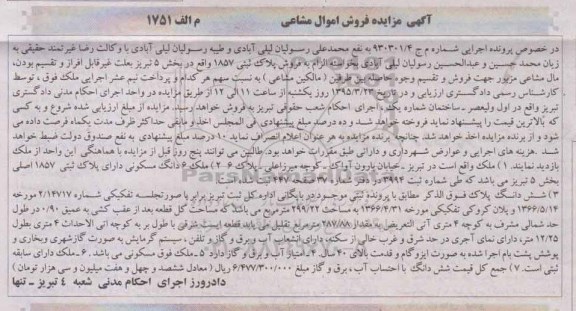 آگهی مزایده فروش اموال مشاعی م الف ۱۷۵۱
در خصوص پرونده اجرایی شماره م ج ۹۳۰۳۰۱/۴ به نفع محمدعلی رسولیان لیلی آبادی و طیبه رسولیان لیلی آبادی با وکالت رضا غیرتمند حقیقی به
زیان محمد حسین و عبدالحسین رسولیان لیلی آبادی الزام به فروش پلاک ثبتی ۱۸۵۷ واقع در بخش ۵ تبریز بعلت غیرقابل افراز و تقسیم بودن،
مال مشاعی مزبور جهت فروش و تقسیم وجوه حاصله بین طرفین (مالکین مشاعی) به نسبت سهم هر کدام و پرداخت نیم عشر اجرایی ملک فوق، توسط
کارشناس رسمی دادگستری ارزیابی و در تاریخ ۱۳۹۵/۳/۲۳ روز یکشنبه از ساعت ۱۱ الی ۱۲ از طریق مزایده در واحد اجرای احکام مدنی دادگستری
تبریز واقع در اول ولیعصر ـ ساختمان شماره یک ـ اجرای احکام شعب حقوقی تبریز به فروش خواهد رسید. مزایده از مبلغ ارزیابی شده شروع و به کسی
که بالاترین قیمت را پیشنهاد نماید فروخته خواهد شد و ده درصد مبلغ پیشنهادی فی المجلس اخذ و مابقی حداکثر ظرف مدت یکماه فرصت داده می
شود و از برنده مزایده اخذ خواهد شد. چنانچه برنده مزایده به هر عنوان اعلام انصراف نماید ۱۰ درصد مبلغ پیشنهادی به نفع صندوق دولت ضبط خواهد
شد. هزینه های اجرایی و عوارض شهرداری و دارائی طبق مقررات خواهد بود. طالبین می توانند پنج روز قبل از مزایده با هماهنگی این واحد از ملک
بازدید نمایند. ۱) ملک واقع است در تبریز ـ خیابان بارون آواک ـ کوچه میرزاعلی ـ پلاک ۶ ۲) ملک ۶ دانگ مسکونی دارای پلاک ثبتی ۱۸۵۷ اصلی
بخش ۵ تبریز می باشد که طی شماره ثبت ۳۹۱۴ در دفتر ۴۷ صفحه ثبت شده است
۳) شش دانگ پلاک فوق الذکر مطابق با پرونده ثبتی موجود در بایگانی اداره کل ثبت تبریز برابر با صورتجلسه تفکیکی شماره ۲/۱۴۷۱۷ مورخه
۱۳۶۶/۵/۱۴ و پلان کروکی تفکیکی مورخه ۱۳۶۶/۴/۳۱ به مساحت ۲۹۹/۲۲ مترمربع می باشد که مساحت کل قطعه بعد از عقب کشی به عمیق ۰/۹۰ در طول
حد شمالی مشرف به کوچه ۴ متری آتی التعریض به مقدار ۲۸۷/۸۸ مترمربع تقلیل می یابد قطعه است شرقی با طول بر به کوچه آتی الاحداث ۴ متری بطول
۱۲/۲۵ متر، دارای نمای آجری در حد شرق و غرب خالی از سکنه، دارای انشعاب آب و برق و گاز و تلفن، سیستم گرمایش به صورت گازشهری وبخاری و
پوشش پشت بام اجرا شده به صورت ایزوگام و قدمت بالای ۴۰ سال. ۴ـ امتیاز آب و برق و گاز دارد ۵ـ ملک فوق مسکونی می باشد. ۶ـ ملک دارای سابقه
ثبتی است. ۷) جمع کل قیمت شش دانگ با احتساب آب، برق و گاز مبلغ ۶/۴۷۷/۳۰۰/۰۰۰ ریال (معادل ششصد و چهل و هفت میلیون و سی هزار تومان)
دادرورز اجرای احکام مدنی شعبه ۴ تبریز ـ تنها